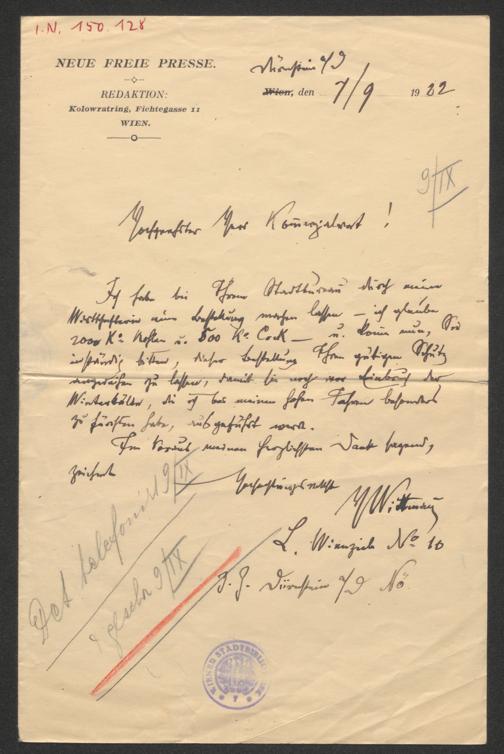 I.N. 150.128
NEUE FREIE PRESSE.
REDAKTION:
Kolowratring, Fichtegasse 11
WIEN.
Dürnstein a/D
Wien, den 7/9 1922
9/IX
Hochgeehrter Herr Kommerzialrat!
Ich habe bei Ihrem Stadtbureau durch meine
Wirthschafterin eine Bestellung machen lassen – ich glaube
2000 Ko Kohlen u. 500 Ko Coak – u. komme nun, Sie
inständig bitten, dieser Bestellung Ihren gütigen Schutz
angedeihen zu lassen, damit sie noch vor Einbruch der
Winterkälte, die ich bei meinen hohen Jahren besonders
zu fürchten habe, ausgeführt werde.
Im Voraus meinen herzlichsten Dank sagend,
zeichnet
Hochachtungsvollst
HWittmann
L. Wienzeile No 10
z. Z. Dürnstein a/D Nö
telefoniert 9/IX
9/IX
WIENER STADTBIBLIOTHEK